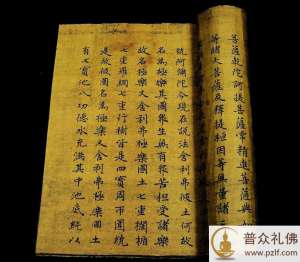 菩薩乾陀訶提菩薩常精進菩薩與如
等諸大菩薩及釋提桓因等無量諸
號阿彌陀今現在說法舍利弗彼土何故
名為極樂其國眾生無有眾苦但受諸樂
故名極樂又舍利弗極樂國土七重欄楯
七重羅網七重行樹皆是四寶周匝圍繞
是故彼國名為極樂又舍利弗極樂國土
有七寶池八功德水充滿其中池底純以
普众礼佛
www.pzlf.com